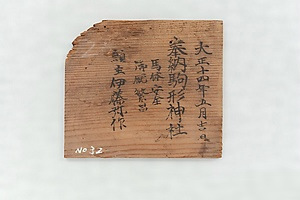 大正十四年五月吉日
奉納駒形神社
馬体安全
海陸繁昌
願主伊藤弥作
No 32